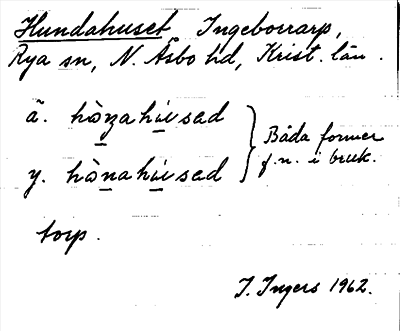 Hundahuset, Ingeborrarp,
Rya sn, N. Åsbo hd, Krist. län.
ä. hònzahúsad
y. hònahúsad
Båda former
f.n. i bruk.
torp.
I. Ingers 1962.